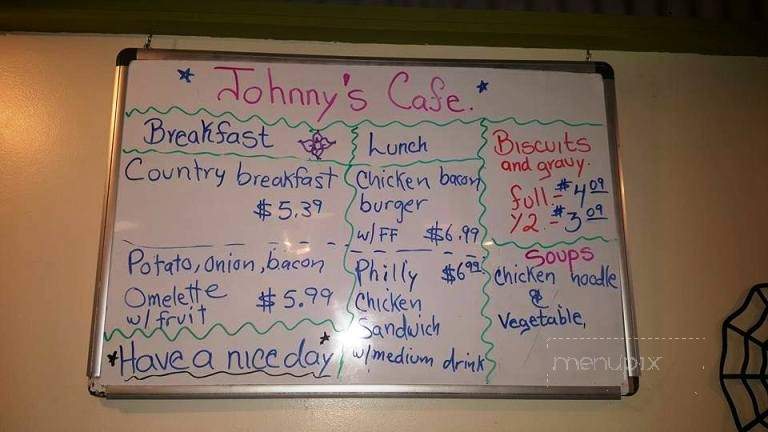 Johnny's Cafe.
Breakfast
Country breakfast
$5.39
Potato, onion, bacon
Omelette $5.99
w/ fruit
Have a nice day
Lunch
Chicken bacon
burger
w/ FF $6.99
Philly $6.99
Chicken
Sandwich
w/medium drink
Biscuits
and gravy.
full - $4.09
1/2. - $3.09
Soups
Chicken noodle
&
Vegetable,
menupix